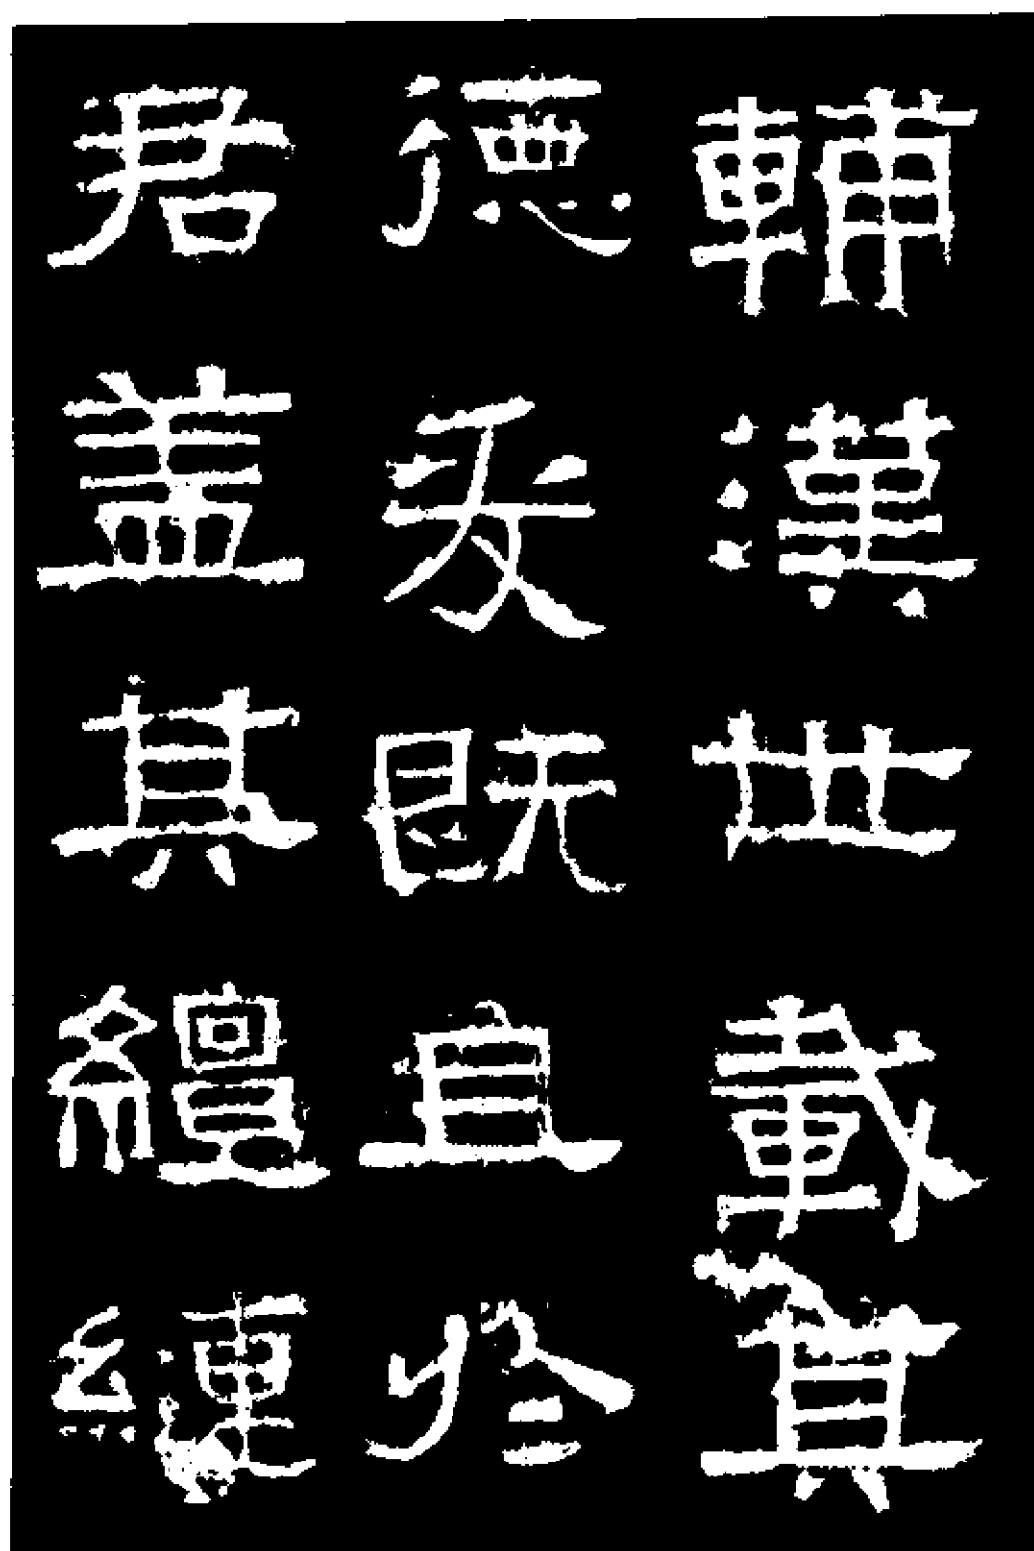 輔漢世載其
德爰既且於
君盖其繵縺